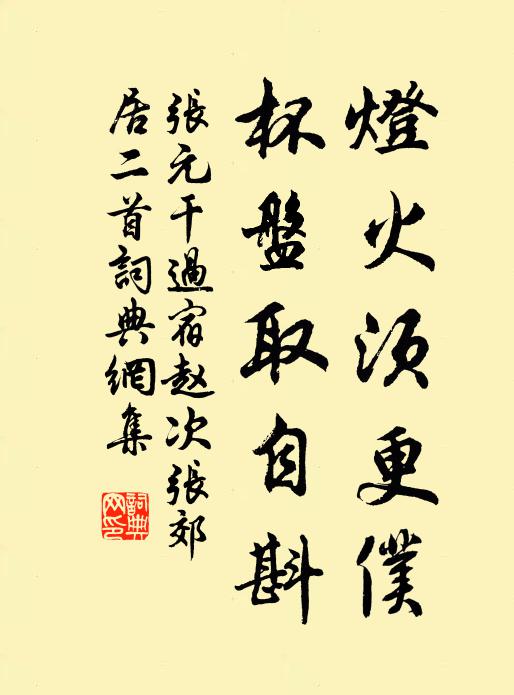 燈火須更僕
杯盤取自斟
張元干過宿赵次張郊
居二首詞典網集
詞典
网印